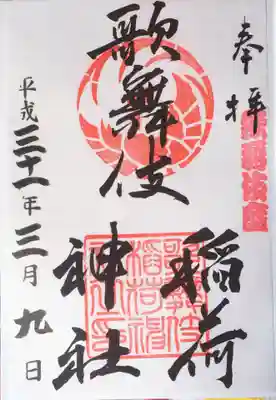 奉拝
歌舞伎
稲荷
神社
平成三十一年三月九日